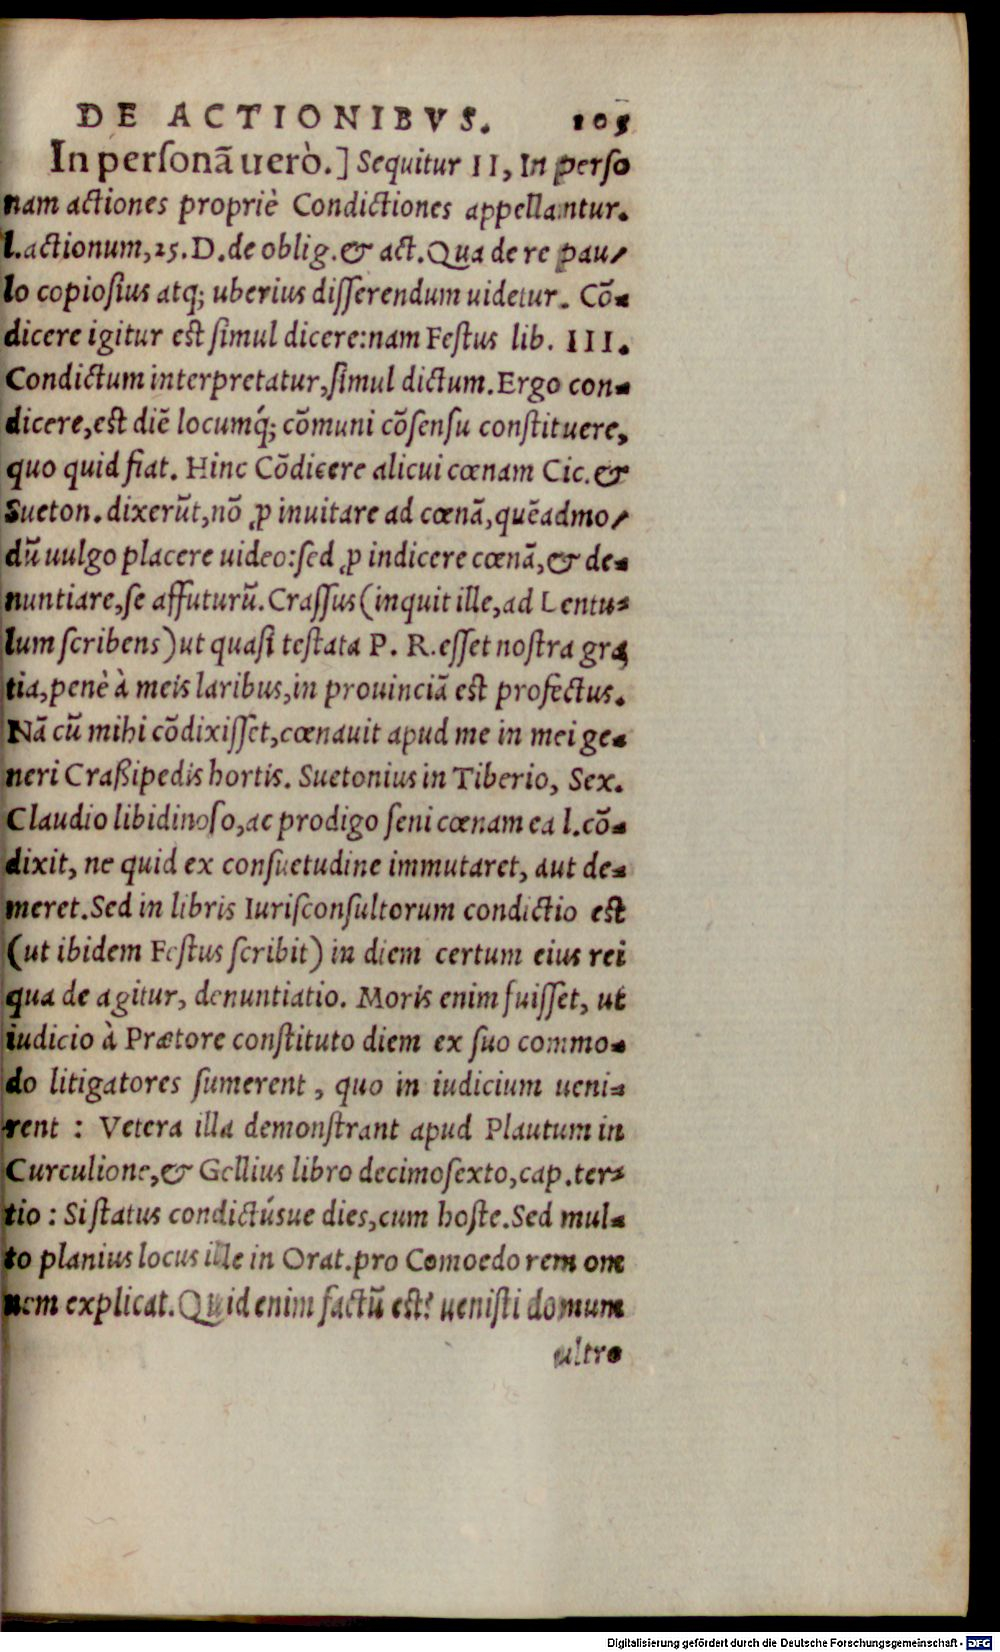 DE ACTIONIBVS. 105
In personã uerò.] Sequitur II, In perso
nam actiones propriè Condictiones appellantur.
l. actionum, 25. D. de oblig. & act. Qua de re pau-
lo copiosius atq; uberius disserendum uidetur. Cõ-
dicere igitur est simul dicere: nam Festus lib. III.
Condictum interpretatur, simul dictum. Ergo con-
dicere, est diẽ locumq́; cõmuni cõsensu constituere,
quo quid fiat. Hinc Cõdicere alicui cœnam Cic. &
Sueton. dixerũt, nõ ꝓ inuitare ad cœnã, quẽadmo-
dũ uulgo placere uideo: sed ꝓ indicere cœnã, & de-
nuntiare, se affuturũ. Crassus (inquit ille, ad Lentu-
lum scribens) ut quasi testata P. R. esset nostra gra
tia, penè à meis laribus, in prouinciã est profectus.
Nã cũ mihi cõdixisset, cœnauit apud me in mei ge-
neri Craßipedis hortis. Suetonius in Tiberio, Sex.
Claudio libidinoso, ac prodigo seni cœnam ea l. cõ-
dixit, ne quid ex consuetudine immutaret, aut de-
meret. Sed in libris Iurisconsultorum condictio est
(ut ibidem Festus scribit) in diem certum eius rei
qua de agitur, denuntiatio. Moris enim fuisset, ut
iudicio à Prætore constituto diem ex suo commo-
do litigatores sumerent, quo in iudicium ueni-
rent : Vetera illa demonstrant apud Plautum in
Curculione, & Gellius libro decimosexto, cap. ter-
tio : Si status condictúsue dies, cum hoste. Sed mul-
to planius locus ille in Orat. pro Comoedo rem om
nem explicat. Quid enim factũ est? uenisti domum
ultro
Digitalisierung gefördert durch die Deutsche Forschungsgemeinschaft - DFG